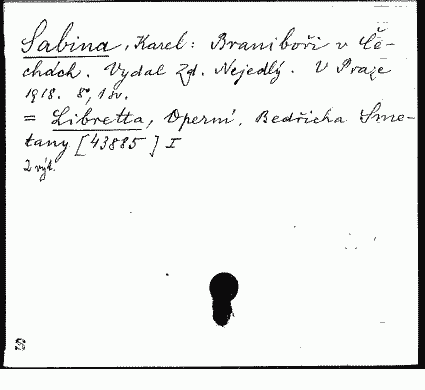 Sabina, Karel: Braniboři v Če-
chách. Vydal Zd. Nejedlý. V Praze
1918. 8°, 1 sv.
= Libretta, Operní, Bedřicha Sme-
tany [43885] I
2 výt.